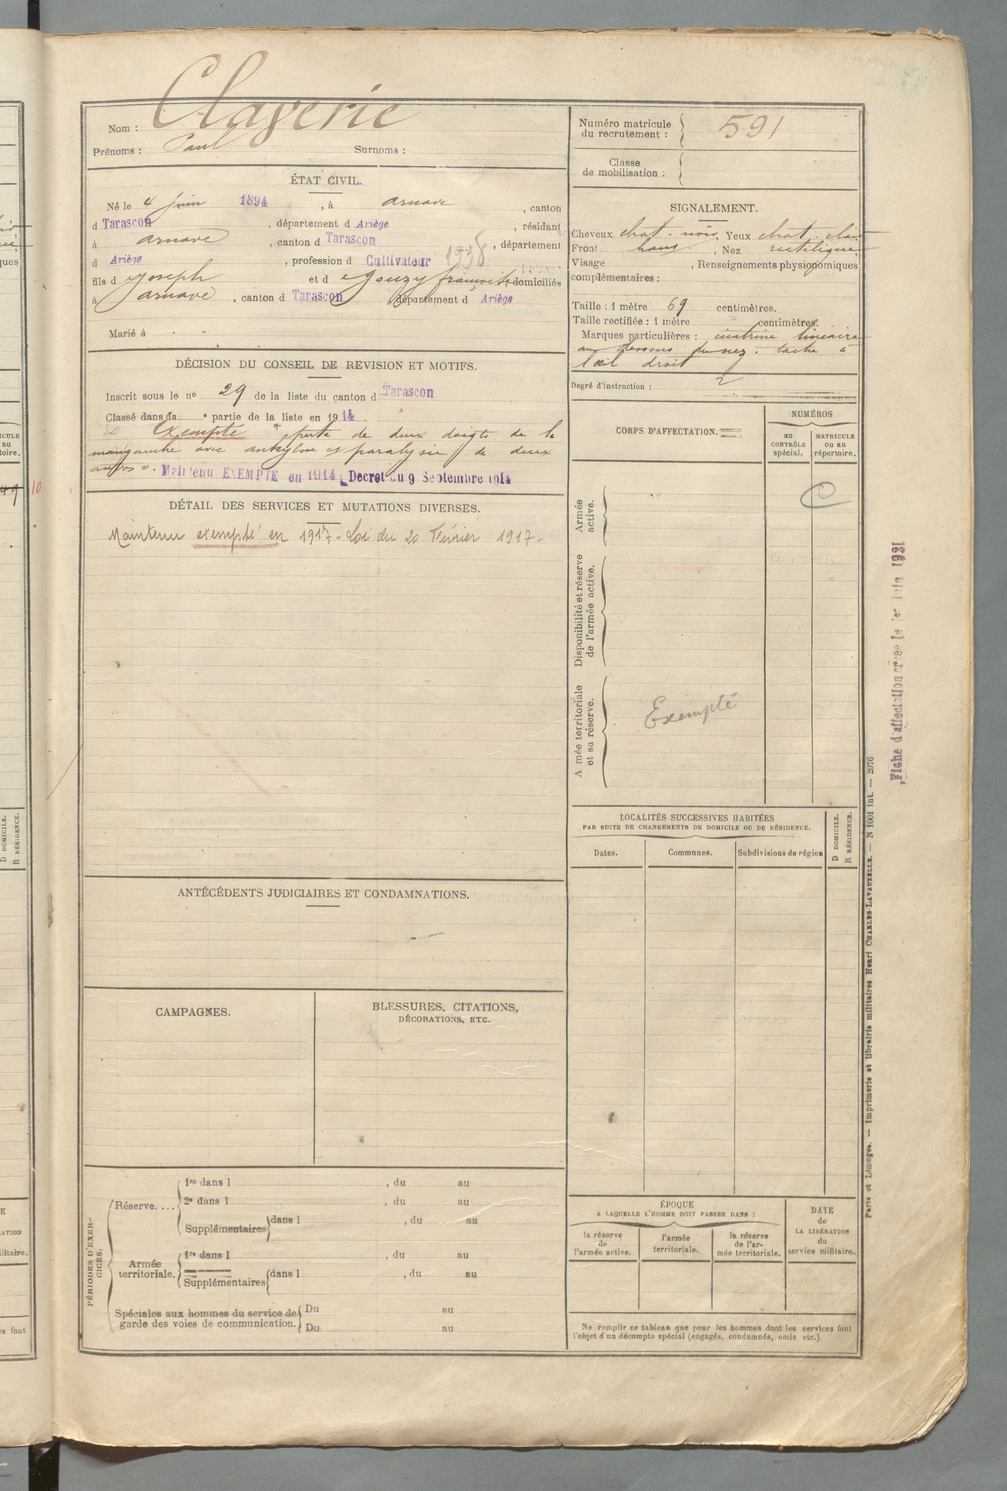 Clagerie
Nom :
Prénoms : Paul Surnoms :
ÉTAT CIVIL.
Né le 4 juin 1894, à arnave, canton
d Tarascon, département d Ariège, résidant
à arnave, canton d Tarascon, département
d Ariège, profession d Cultivateur 1938
fils d Joseph et d Gouzy françoise, domiciliés
à arnave, canton d Tarascon département d Ariège
Marié à
DÉCISION DU CONSEIL DE REVISION ET MOTIFS.
Inscrit sous le no 29 de la liste du canton d Tarascon
Classé dans la partie de la liste en 1914
Exempté perte de deux doigts de la
main gauche avec ankylose et paralysie de deux
autres ». Maintenu EXEMPTÉ en 1914, Décret du 9 Septembre 1914
DÉTAIL DES SERVICES ET MUTATIONS DIVERSES.
Maintenu exempté en 1917 - Loi du 20 Février 1917 -
ANTÉCÉDENTS JUDICIAIRES ET CONDAMNATIONS.
CAMPAGNES.
BLESSURES, CITATIONS,
DÉCORATIONS, ETC.
PÉRIODES D'EXER-
CICES.
Réserve....
1re dans l , du au
2e dans l , du au
Supplémentaires dans l , du au
Armée
territoriale.
1re dans l , du au
Supplémentaires dans l , du au
Spéciales aux hommes du service de
garde des voies de communication.
Du au
Du au
Numéro matricule
du recrutement : 591
Classe
de mobilisation :
SIGNALEMENT.
Cheveux chat. noir, Yeux chat. clair
Front haut, Nez rectiligne
Visage , Renseignements physionomiques
complémentaires :
Taille : 1 mètre 69 centimètres.
Taille rectifiée : 1 mètre centimètres.
Marques particulières : cicatrice linéaire
au dessous du nez. tache à
l'œil droit
Degré d'instruction : 2
CORPS D'AFFECTATION.
NUMÉROS
au
CONTRÔLE
spécial.
MATRICULE
ou au
répertoire.
Armée
active.
C
Disponibilité et réserve
de l'armée active.
Armée territoriale
et sa réserve.
Exempté
LOCALITÉS SUCCESSIVES HABITÉES
PAR SUITE DE CHANGEMENTS DE DOMICILE OU DE RÉSIDENCE.
D DOMICILE.
R RÉSIDENCE.
Dates. Communes. Subdivisions de région
ÉPOQUE
A LAQUELLE L'HOMME DOIT PASSER DANS :
la réserve
de
l'armée active.
l'armée
territoriale.
la réserve
de l'ar-
mée territoriale.
DATE
de
LA LIBÉRATION
du
service militaire.
Ne remplir ce tableau que pour les hommes dont les services font
l'objet d'un décompte spécial (engagés, condamnés, omis etc.).
Paris et Limoges. — Imprimerie et librairie militaires Henri CHARLES-LAVAUZELLE. — N 1001 int. — 2076
Fiche d'affectation créée le 1er Juin 1921